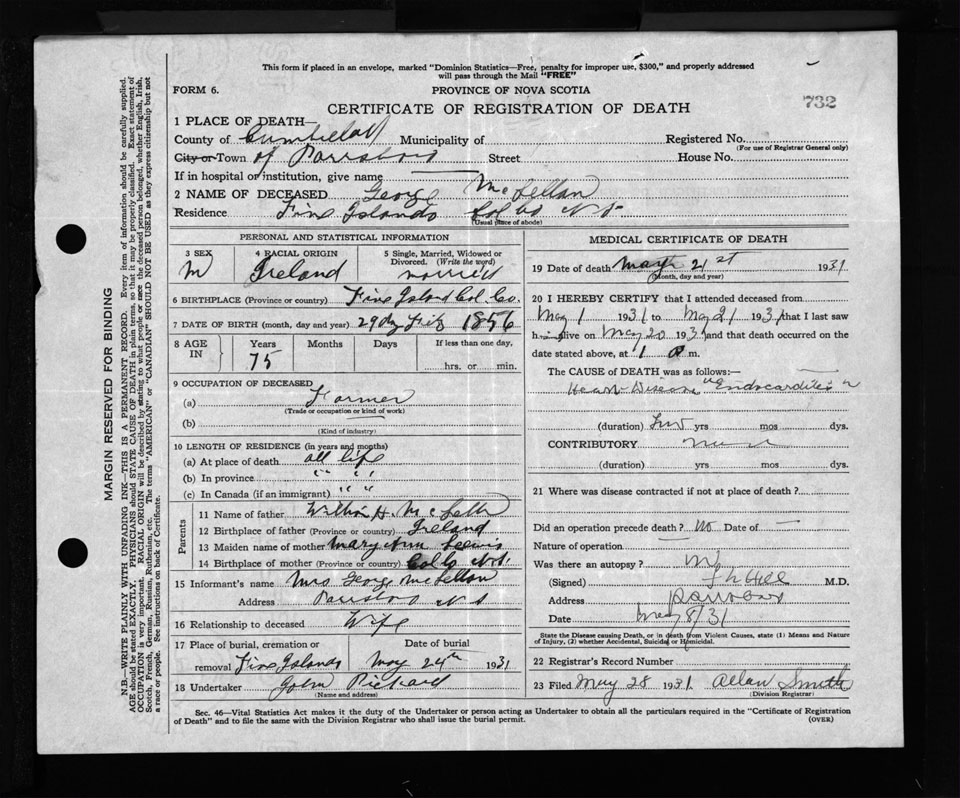 This form if placed in an envelope, marked "Dominion Statistics—Free, penalty for improper use, $300," and properly addressed
will pass through the Mail "FREE"
FORM 6.
PROVINCE OF NOVA SCOTIA
732
CERTIFICATE OF REGISTRATION OF DEATH
1 PLACE OF DEATH—
County of Cumberland Municipality of Registered No.
(For use of Registrar General only)
City or Town of Parrsboro Street House No.
If in hospital or institution, give name —
2 NAME OF DECEASED George McLellan
Residence Five Islands Col Co N S
(Usual place of abode)
PERSONAL AND STATISTICAL INFORMATION
3 SEX M
4 RACIAL ORIGIN Ireland
5 Single, Married, Widowed or
Divorced. (Write the word)
married
6 BIRTHPLACE (Province or country) Five Island Col. Co.
7 DATE OF BIRTH (month, day and year) 29 day Feb 1856
8 AGE
IN
Years Months Days If less than one day,
75 hrs. or min.
9 OCCUPATION OF DECEASED
(a) Farmer
(Trade or occupation or kind of work)
(b)
(Kind of industry)
10 LENGTH OF RESIDENCE (in years and months)
(a) At place of death all life
(b) In province " " " "
(c) In Canada (if an immigrant) " " "
Parents
11 Name of father William H. McLellan
12 Birthplace of father (Province or country) Ireland
13 Maiden name of mother Mary Ann Lewis
14 Birthplace of mother (Province or country) Col Co N.S.
15 Informant's name Mrs George McLellan
Address Parrsboro N S
16 Relationship to deceased Wife
17 Place of burial, cremation or Date of burial
removal Five Islands May 24th 1931
18 Undertaker John Rickard
(Name and address)
MEDICAL CERTIFICATE OF DEATH
19 Date of death May 21st 1931
(Month, day and year)
20 I HEREBY CERTIFY that I attended deceased from
May 1 1931 to May 21 1931 that I last saw
h im alive on May 20 1931 and that death occurred on
date stated above, at 1 a m.
The CAUSE of DEATH was as follows:—
Heart Disease "Endocarditis"
(duration) Two yrs mos dys.
CONTRIBUTORY
(duration) yrs mos dys.
21 Where was disease contracted if not at place of death?
Did an operation precede death? No Date of —
Nature of operation —
Was there an autopsy? No
(Signed) Hill M.D.
Address Parrsboro
Date May 8/31
State the Disease causing Death, or in death from Violent Causes, state (1) Means and Nature
of Injury, (2) whether Accidental, Suicidal or Homicidal.
22 Registrar's Record Number
23 Filed May 28 1931 Allan Smith
(Division Registrar)
Sec. 46—Vital Statistics Act makes it the duty of the Undertaker or person acting as Undertaker to obtain all the particulars required in the "Certificate of Registration
of Death" and to file the same with the Division Registrar who shall issue the burial permit.
(OVER)
MARGIN RESERVED FOR BINDING
N.B.—WRITE PLAINLY WITH UNFADING INK—THIS IS A PERMANENT RECORD. Every item of information should be carefully supplied.
AGE should be stated EXACTLY. PHYSICIANS should STATE CAUSE OF DEATH in plain terms, so that it may be properly classified. Exact statement of
OCCUPATION is very important. RACIAL ORIGIN will be described by stating to what people or race the deceased person belonged, whether English, Irish,
Scotch, French, German, Russian, Ruthenian, etc. The terms "AMERICAN" or "CANADIAN" SHOULD NOT BE USED as they express citizenship but not
a race or people. See instructions on back of Certificate.